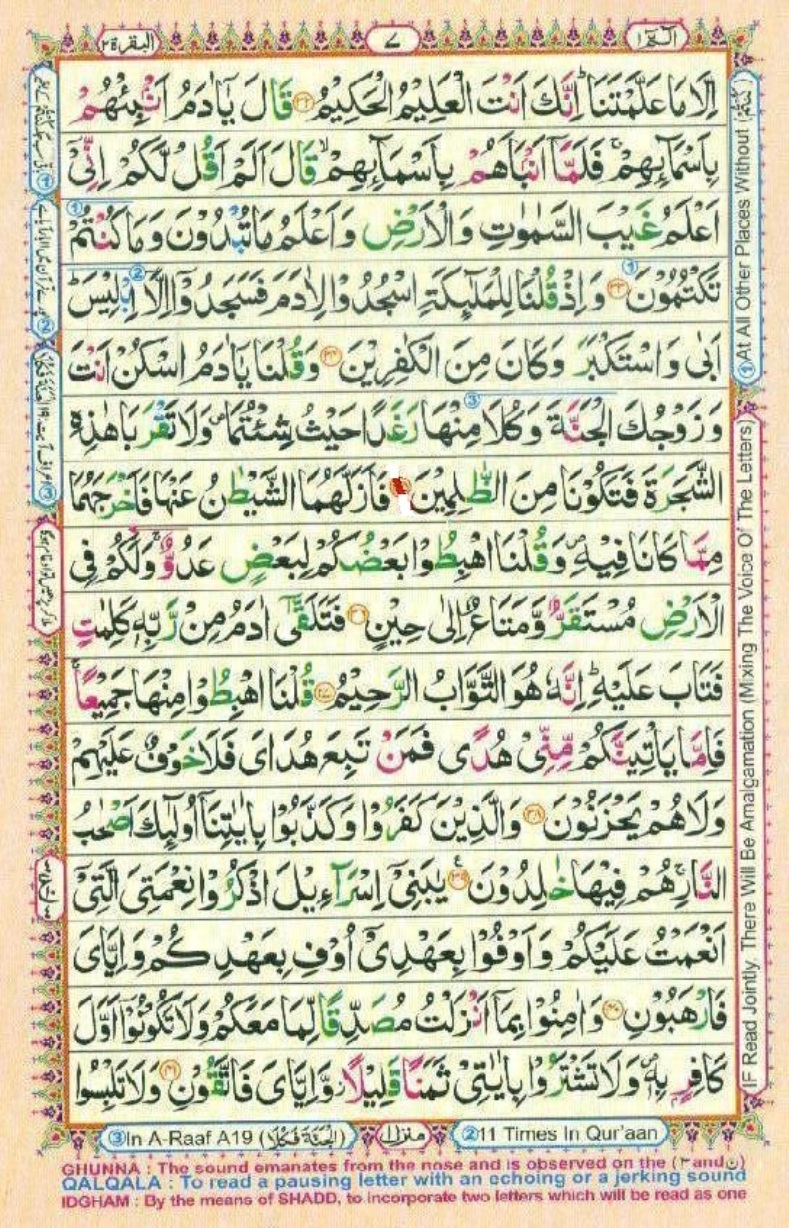 الٓمّٓ ١
٧
البقرة ٢
اِلَّا مَا عَلَّمْتَنَا ؕ اِنَّكَ اَنْتَ الْعَلِيْمُ الْحَكِيْمُ ﴿٣٢﴾ قَالَ يٰۤاٰدَمُ اَنْۢبِئْهُمْ
بِاَسْمَآئِهِمْ ۚ فَلَمَّاۤ اَنْۢبَاَهُمْ بِاَسْمَآئِهِمْ ۙ قَالَ اَلَمْ اَقُلْ لَّكُمْ اِنِّىْۤ
اَعْلَمُ غَيْبَ السَّمٰوٰتِ وَالْاَرْضِ وَاَعْلَمُ مَا تُبْدُوْنَ وَمَا كُنْتُمْ
تَكْتُمُوْنَ ﴿٣٣﴾ وَاِذْ قُلْنَا لِلْمَلٰٓئِكَةِ اسْجُدُوْا لِاٰدَمَ فَسَجَدُوْۤا اِلَّاۤ اِبْلِيْسَ ؕ
اَبٰى وَاسْتَكْبَرَ ۗ وَكَانَ مِنَ الْكٰفِرِيْنَ ﴿٣٤﴾ وَقُلْنَا يٰۤاٰدَمُ اسْكُنْ اَنْتَ
وَزَوْجُكَ الْجَنَّةَ وَكُلَا مِنْهَا رَغَدًا حَيْثُ شِئْتُمَا ۪ وَلَا تَقْرَبَا هٰذِهِ
الشَّجَرَةَ فَتَكُوْنَا مِنَ الظّٰلِمِيْنَ فَاَزَلَّهُمَا الشَّيْطٰنُ عَنْهَا فَاَخْرَجَهُمَا
مِمَّا كَانَا فِيْهِ ۪ وَقُلْنَا اهْبِطُوْا بَعْضُكُمْ لِبَعْضٍ عَدُوٌّ ۚ وَلَكُمْ فِى
الْاَرْضِ مُسْتَقَرٌّ وَّمَتَاعٌ اِلٰى حِيْنٍ ﴿٣٦﴾ فَتَلَقّٰٓى اٰدَمُ مِنْ رَّبِّهٖ كَلِمٰتٍ
فَتَابَ عَلَيْهِ ؕ اِنَّهٗ هُوَ التَّوَّابُ الرَّحِيْمُ ﴿٣٧﴾ قُلْنَا اهْبِطُوْا مِنْهَا جَمِيْعًا ۚ
فَاِمَّا يَاْتِيَنَّكُمْ مِّنِّىْ هُدًى فَمَنْ تَبِعَ هُدَاىَ فَلَا خَوْفٌ عَلَيْهِمْ
وَلَا هُمْ يَحْزَنُوْنَ ﴿٣٨﴾ وَالَّذِيْنَ كَفَرُوْا وَكَذَّبُوْا بِاٰيٰتِنَاۤ اُولٰٓئِكَ اَصْحٰبُ
النَّارِ ۚ هُمْ فِيْهَا خٰلِدُوْنَ ﴿٣٩﴾ يٰبَنِىْۤ اِسْرَآءِيْلَ اذْكُرُوْا نِعْمَتِىَ الَّتِىْۤ
اَنْعَمْتُ عَلَيْكُمْ وَاَوْفُوْا بِعَهْدِىْۤ اُوْفِ بِعَهْدِكُمْ وَاِيَّاىَ
فَارْهَبُوْنِ ﴿٤٠﴾ وَاٰمِنُوْا بِمَاۤ اَنْزَلْتُ مُصَدِّقًا لِّمَا مَعَكُمْ وَلَا تَكُوْنُوْۤا اَوَّلَ
كَافِرٍۢ بِهٖ ۪ وَلَا تَشْتَرُوْا بِاٰيٰتِىْ ثَمَنًا قَلِيْلًا ؗ وَّاِيَّاىَ فَاتَّقُوْنِ ﴿٤١﴾ وَلَا تَلْبِسُوا
① At All Other Places Without (كُنْتُمْ)
IF Read Jointly. There Will Be Amalgamation (Mixing The Voice Of The Letters)
③In A-Raaf A19 (الْجَنَّةَ فَكُلَا)
منزل ١
②11 Times In Qur'aan
GHUNNA : The sound emanates from the nose and is observed on the (م and ن)
QALQALA : To read a pausing letter with an echoing or a jerking sound
IDGHAM : By the means of SHADD, to incorporate two letters which will be read as one